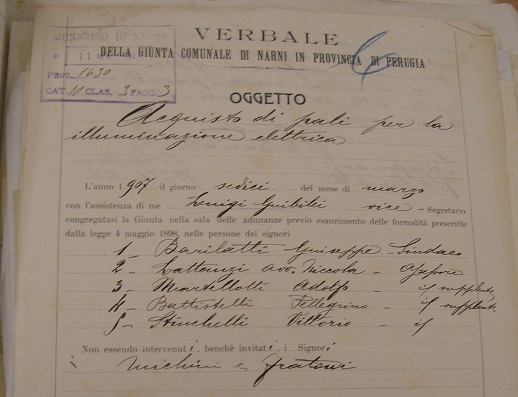 MUNICIPIO DI NARNI
PROT. 1630
CAT. 10 CLAS. 3 FASC. 3
VERBALE
DELLA GIUNTA COMUNALE DI NARNI IN PROVINCIA DI PERUGIA
6
OGGETTO
Acquisto di pali per la
illuminazione elettrica
L'anno 1907 il giorno sedici del mese di marzo
con l'assistenza di me Luigi vice - Segretario
congregatasi la Giunta nella sala delle adunanze previo esaurimento delle formalità prescritte
dalla legge 4 maggio 1898, nelle persone dei signori
1 - Barilatti Giuseppe - Sindaco
2 - Lattanzi Avv. Niccola - Assessore
3 - Martellotti Adolfo - if supplente
4 - Battistelli Pellegrino - if supplent.
5 - Stinchelli Vittorio - if
Non essendo intervenuti, benchè invitati i Signori
Michini e Fratoni